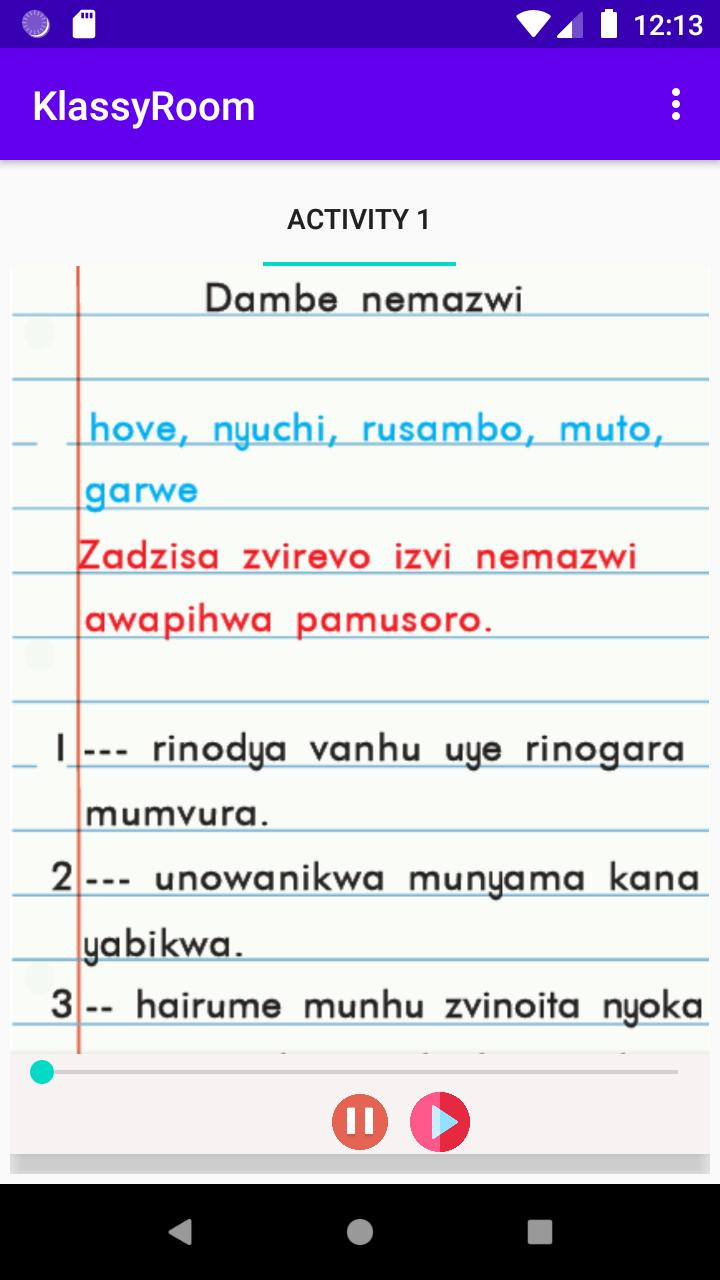 12:13
KlassyRoom
ACTIVITY 1
Dambe nemazwi
hove, nyuchi, rusambo, muto,
garwe
Zadzisa zvirevo izvi nemazwi
awapihwa pamusoro.
1 --- rinodya vanhu uye rinogara
mumvura.
2 --- unowanikwa munyama kana
yabikwa.
3 -- hairume munhu zvinoita nyoka